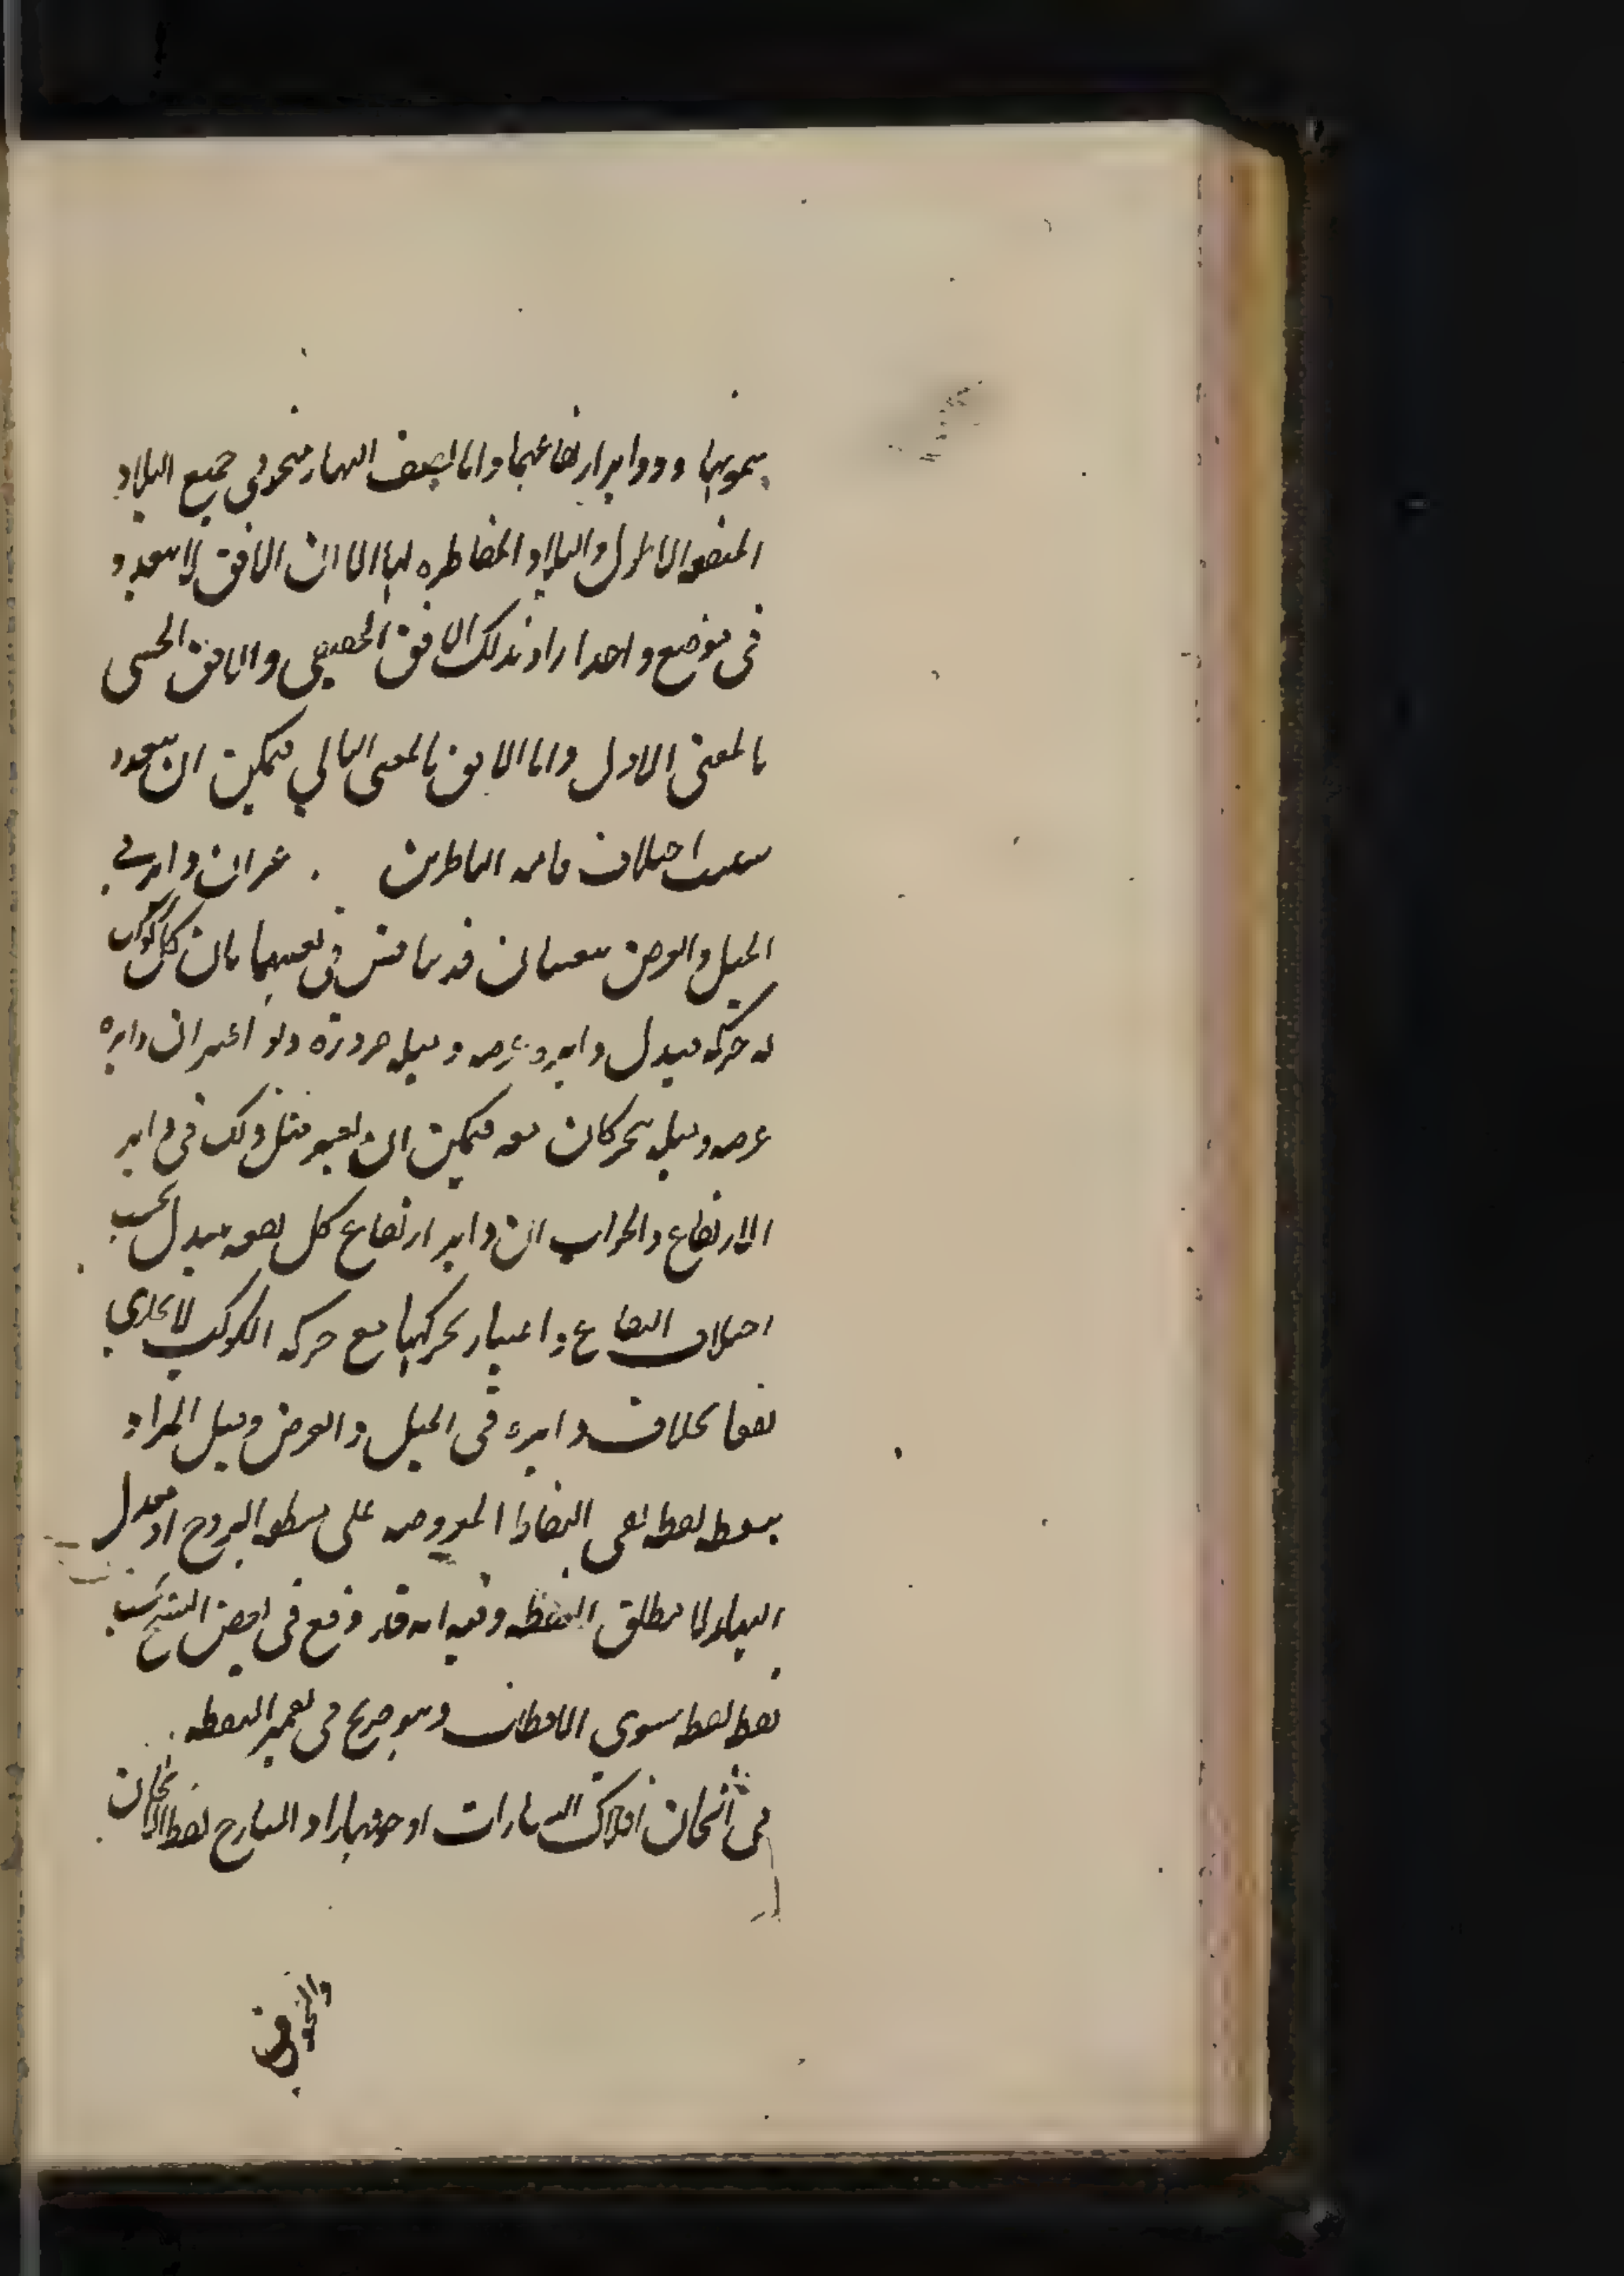 سموتها ودواير ارتفاعها واما نصف النهار فيتحد في جميع البلاد
المتفقة الاطول والبلاد المقاطره لها الا ان الافق لا يتعدد
في موضع واحد اراد بذلك الافق الحقيقي والافق الحسي
بالمعنى الاول واما الافق بالمعنى الثاني فيمكن ان يتعدد
بحسب اختلاف قامه الناظرين غير ان دايرتي
الميل والعرض تتعينان قد يناقش في تعينهما بان كل كوكب
له حركه فيتبدل دايره عرضه وميله ضرورة ولو اعتبر ان دايرة
عرضه وميله تتحركان معه فيمكن ان يعتبر مثل ذلك في داير
الارتفاع والجواب ان داير ارتفاع كل بقعه يتبدل بحسب
اختلاف البقاع واعتبار تحركها مع حركه الكوكب لا يجدي
نفعا بخلاف دايرة في الميل والعرض وقيل المراد
بنقط نقط هي النقاط المفروضه على منطقه البروج او معدل
النهار لا مطلق النقطه وفيه انه قد وقع في بعض النسخ بحسب
نقط نقط سوى الاقطاب وهو صريح في تعميم النقطه
في اثخان افلاك السيارات او جوفها اراد الشارح بلفظ الاثخان
والتجويف